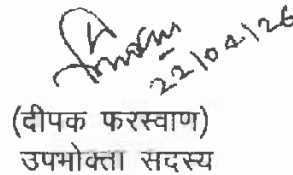 22/04/26
(दीपक फरस्वाण)
उपभोक्ता सदस्य